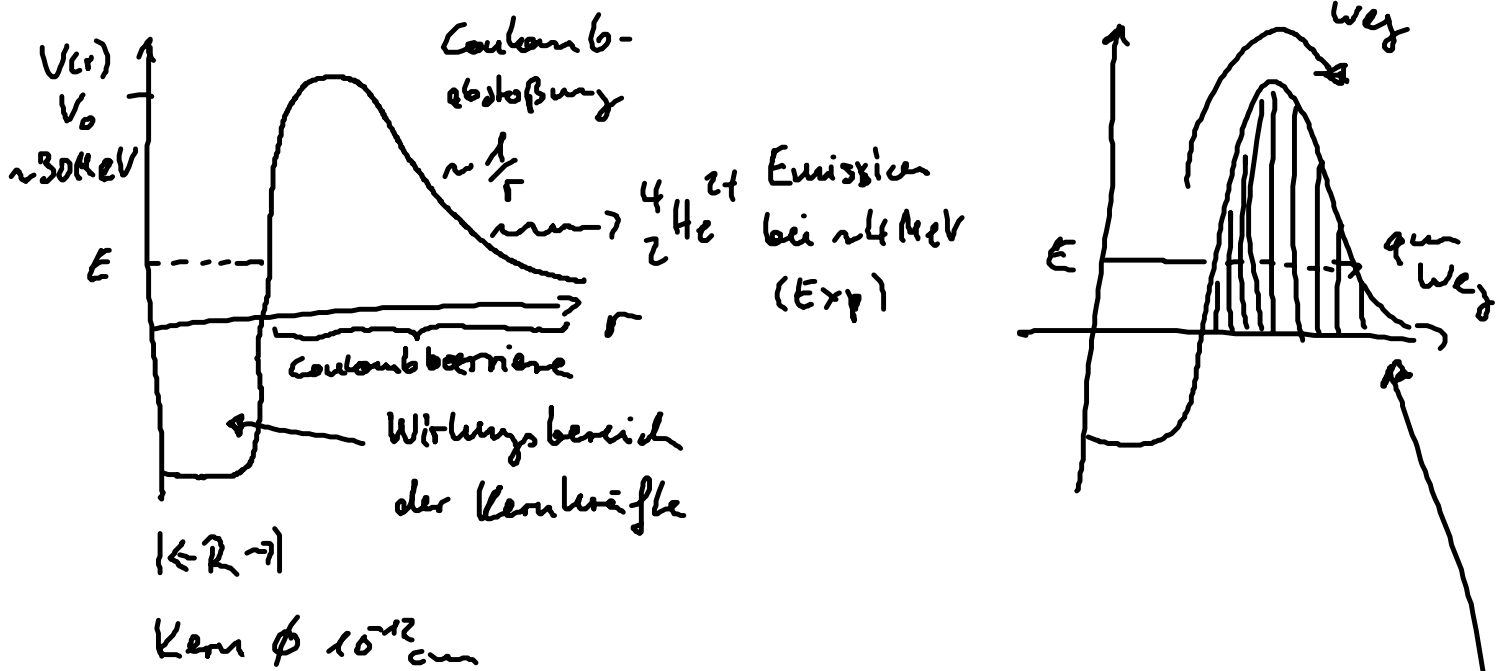 V(r)
V₀
~30MeV
E
Coulomb-
abstoßung
~ 1/r
⁴₂He²⁺ Emission
bei ~4MeV
(Exp)
r
Coulombbarriere
Wirkungsbereich
der Kernkräfte
|← R →|
Kern ∅ 10⁻¹² cm
Weg
E
qm
Weg